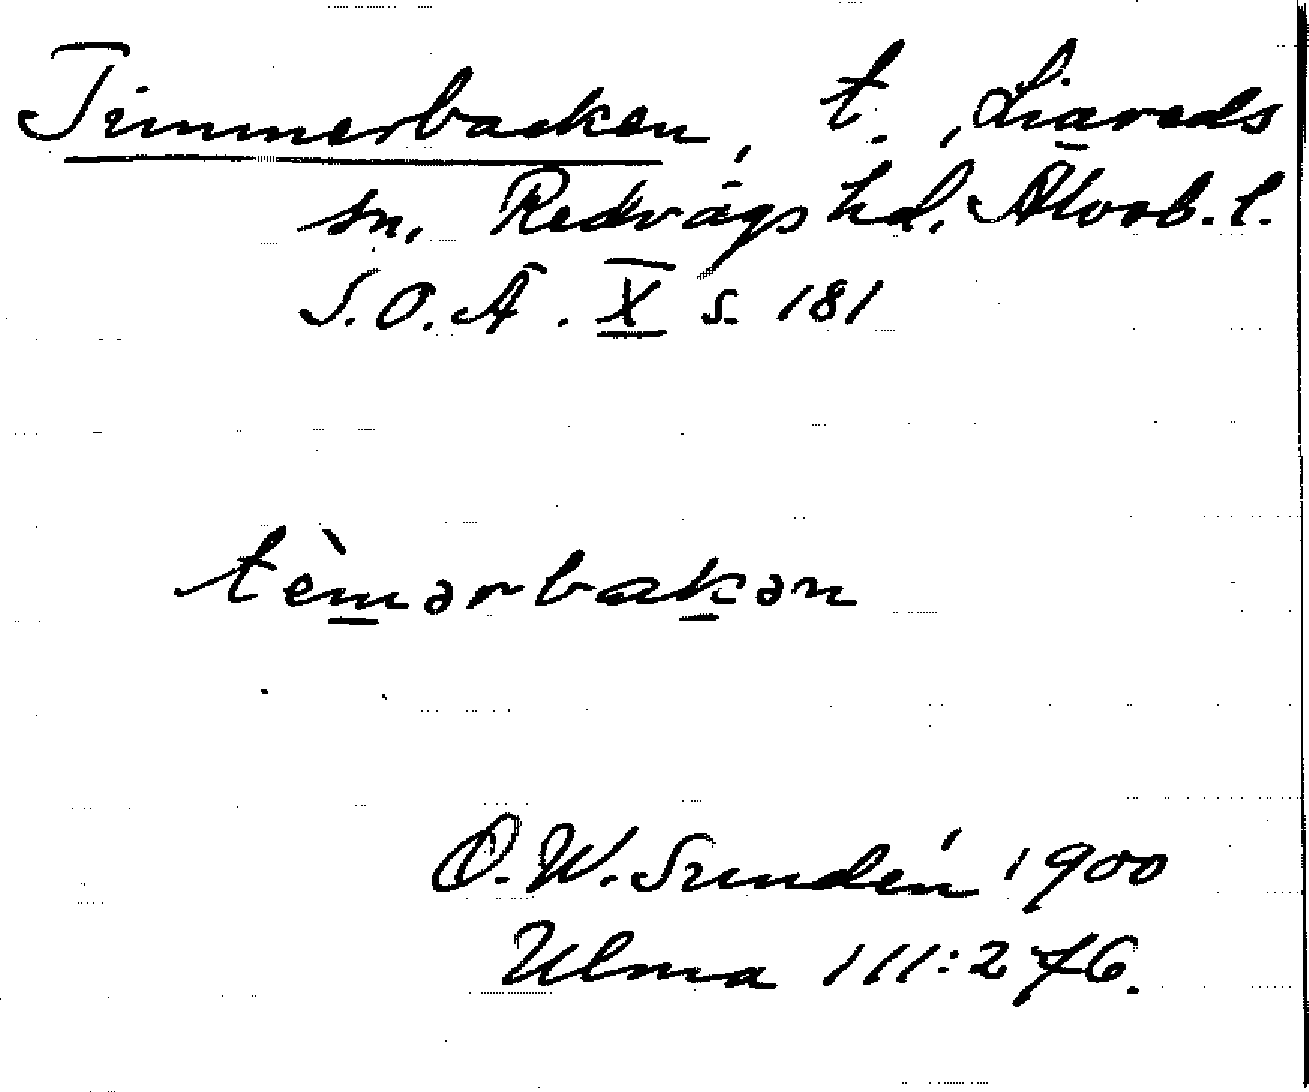 Timmerbacken, t., Liareds
sn. Redvägs hd. Älvsb. l.
S.O.Ä. X s. 181
tèmərbakən
O.W. Sundén 1900
Ulma 111:276.